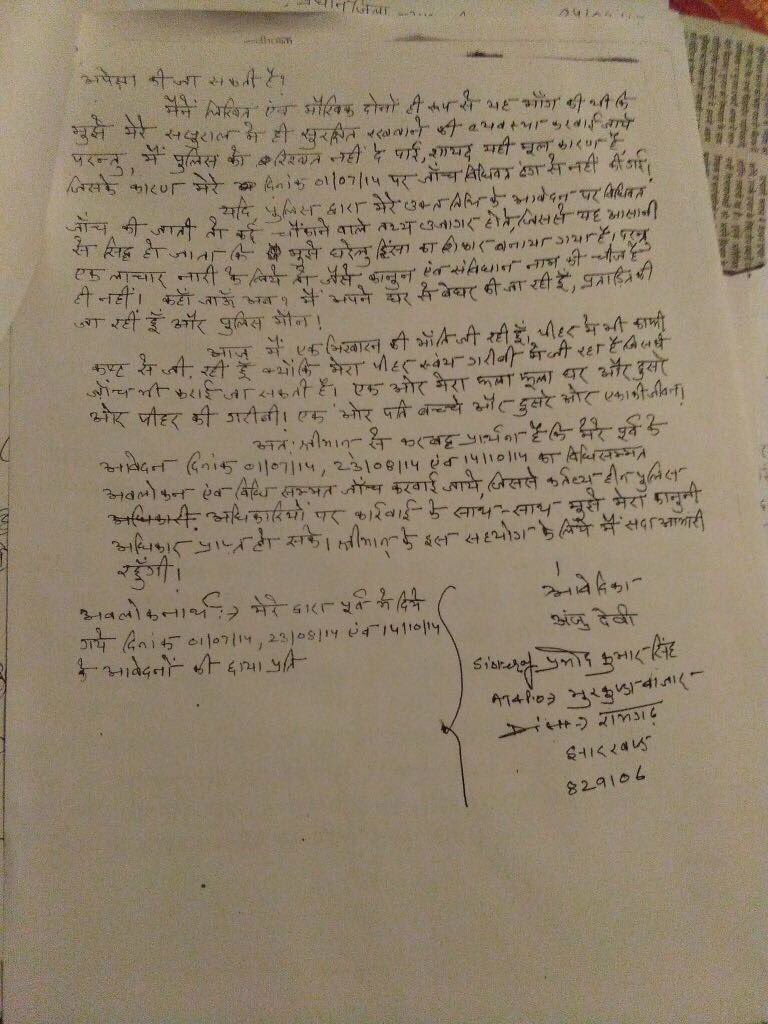 अपेक्षा की जा सकती है?
मैंने लिखित एवं मौखिक दोनों ही रूप से यह माँग की थी कि
मुझे मेरे ससुराल में ही सुरक्षित रखवाने की व्यवस्था करवाई जाये
परन्तु, मैं पुलिस को रिश्वत नहीं दे पाई, शायद यही मूल कारण है
जिसके कारण मेरे दिनांक 01/07/14 पर जाँच विधिवत ढंग से नहीं की गई।
यदि पुलिस द्वारा मेरे उक्त तिथि के आवेदन पर विधिवत
जाँच की जाती तो कई चौंकाने वाले तथ्य उजागर होते, जिससे यह आसानी
से सिद्ध हो जाता कि मुझे घरेलु हिंसा का शिकार बनाया गया है। परन्तु
एक लाचार नारी के लिये तो जैसे कानून एंव संविधान नाम की चीज है
ही नहीं। कहाँ जाऊँ अब? मैं अपने घर से बेघर की जा रही हूँ, प्रताड़ित की
जा रहीं हूँ और पुलिस मौन!
आज मैं एक भिखारन की भाँति जी रही हूँ। पीहर में भी काफी
कष्ट से जी रही हूँ क्योंकि मेरा पीहर स्वंय गरीबी में जी रहा है जिसकी
जाँच भी कराई जा सकती है। एक ओर मेरा फला फूला घर और दुसरे
ओर पीहर की गरीबी। एक ओर पति बच्चे और दुसरे ओर एकाकी जीवन।
अतः श्रीमान् से करबद्ध प्रार्थना है कि मेरे पूर्व के
आवेदन दिनांक 01/07/14, 23/08/14 एंव 14/10/14 का विधिसम्मत
अवलोकन एंव विधि सम्मत जाँच करवाई जाये, जिससे कर्तव्य हीन पुलिस
अधिकारी अधिकारियों पर कार्रवाई के साथ-साथ मुझे मेरा कानुनी
अधिकार प्राप्त हो सके। श्रीमान् के इस सहयोग के लिये मैं सदा आभारी
रहुँगी।
अवलोकनार्थ :→ मेरे द्वारा पूर्व में दिये
गये दिनांक 01/07/14, 23/08/14 एंव 14/10/14
के आवेदनों की छाया प्रति
आवेदिका
अंजु देवी
प्रमोद कुमार सिंह
At+P.O→ भुरकुण्डा बाजार
Dist→ रामगढ़
झारखण्ड
829106